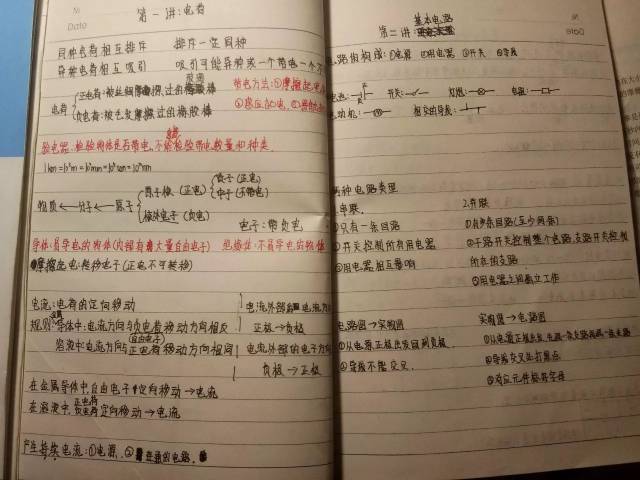 第一讲：电荷
同种电荷相互排斥 排斥一定同种
异种电荷相互吸引 吸引可能异种或一个带电一个不
电荷
正电荷：被丝绸摩擦过的玻璃棒
负电荷：被毛皮摩擦过的橡胶棒
带电方法：①摩擦起电
②感应起电
验电器：检验物体是否带电，不能检验带电数量和种类
1km=10³m=10⁶mm=10⁹um=10¹²nm
物质←分子←原子
原子核（正电）
质子（正电）
中子（不带电）
核外电子（负电）
电子：带负电
导体：易导电的物体（内部有大量自由电子） 绝缘体：不易导电的物体
摩擦起电：转移电子（正电不可转移）
电流：电荷的定向移动
规则：金属导体中：电流方向与负电荷移动方向相反
（自由电子）
溶液中：电流方向与正电荷移动方向相同
电流外部
正极→负极
电流外部的电子方向
负极→正极
在金属导体中，自由电子定向移动→电流
在溶液中，正电荷负电荷定向移动→电流
产生持续电流：①电源，②的电路。
第二讲：基本电路
电路的构成：①电源 ②用电器 ③开关 ④导线
开关： 灯泡： 电铃：
电动机： 相交的导线：
两种电路类型
串联 2.并联
①只有一条回路 ①有多条回路（至少两条）
②开关控制所有用电器 ②干路开关控制整个电路，支路开关控制
所在的支路
③用电器相互影响
③用电器之间独立工作
电路图→实物图 实物图→电路图
①从电源正极出发回到负极
②导线不能交叉
②导线交叉处打黑点
③对应元件标好字母